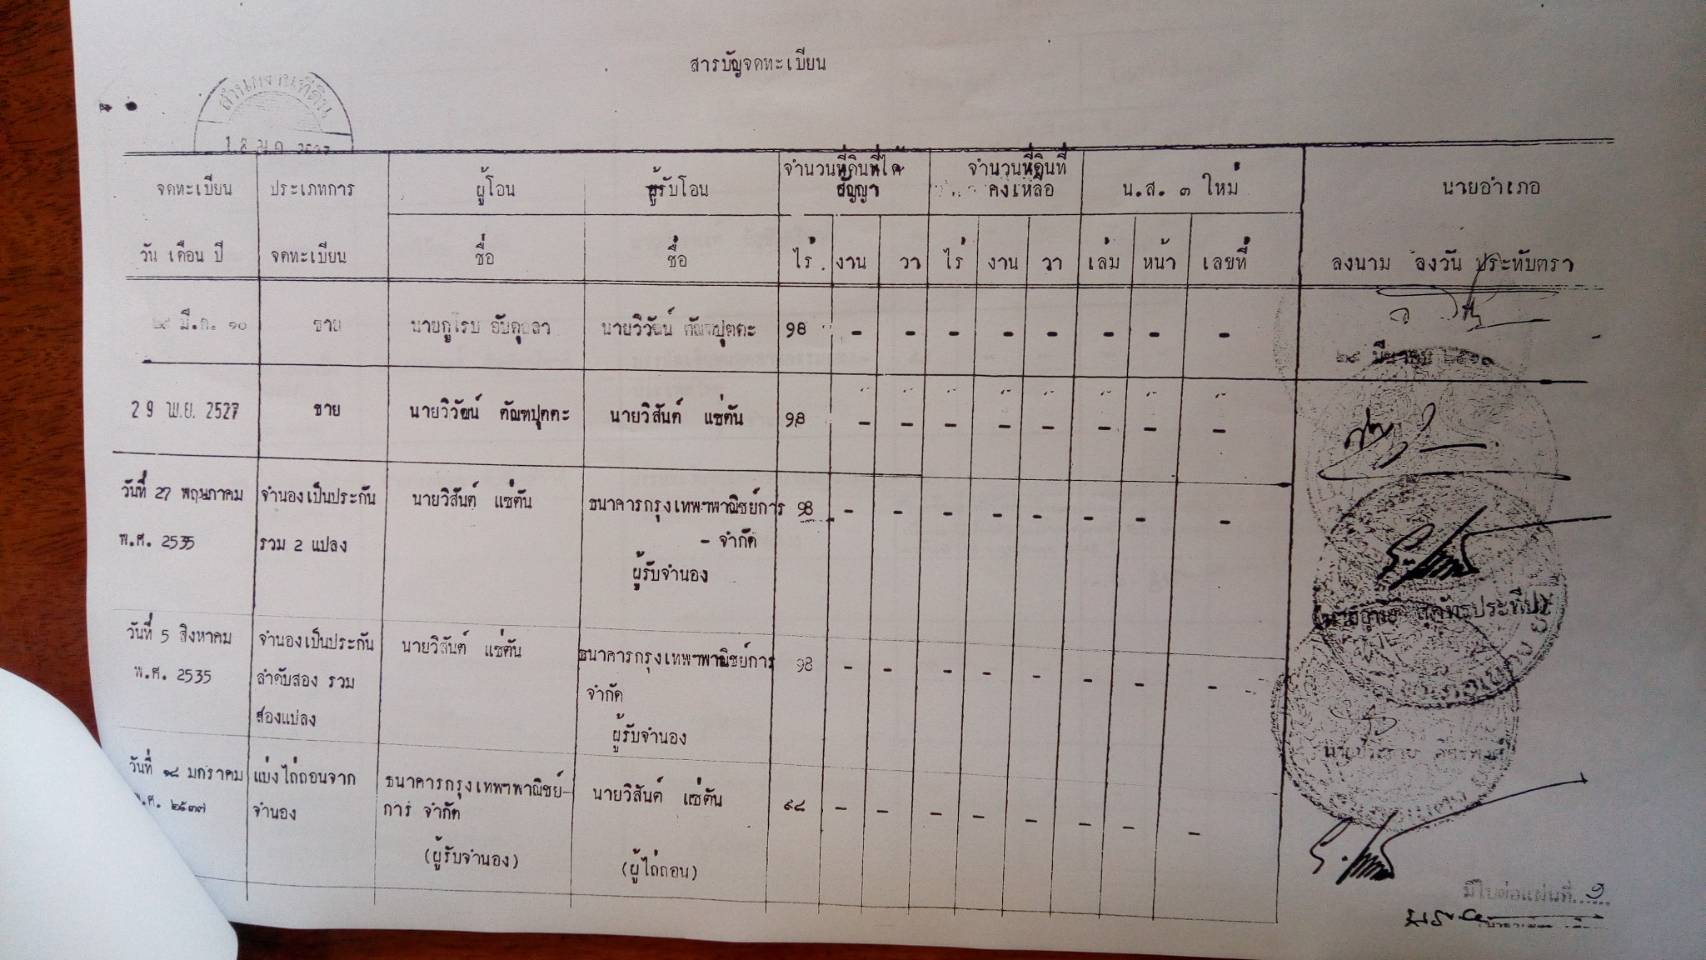 สารบัญจดทะเบียน
สำนักงานที่ดิน
จดทะเบียน
วัน เดือน ปี
ประเภทการ
จดทะเบียน
ผู้โอน
ชื่อ
ผู้รับโอน
ชื่อ
จำนวนที่ดินที่ได้
สัญญา
ไร่ งาน วา
จำนวนที่ดินที่
คงเหลือ
ไร่ งาน วา
น.ส. ๓ ใหม่
เล่ม หน้า เลขที่
นายอำเภอ
ลงนาม ลงวัน ประทับตรา
ขาย
98 - - - - - - - -
มีนาคม
29 พ.ย. 2527
ขาย
นายวิวัฒน์ ตัณฑปุตตะ
นายวิสันต์ แซ่ตัน
98 - - - - - - - -
วันที่ 27 พฤษภาคม
พ.ศ. 2535
จำนองเป็นประกัน
รวม 2 แปลง
นายวิสันต์ แซ่ตัน
ธนาคารกรุงเทพฯพาณิชย์การ
- จำกัด
ผู้รับจำนอง
98 - - - - - - - -
วันที่ 5 สิงหาคม
พ.ศ. 2535
จำนองเป็นประกัน
ลำดับสอง รวม
สองแปลง
นายวิสันต์ แซ่ตัน
ธนาคารกรุงเทพฯพาณิชย์การ
จำกัด
ผู้รับจำนอง
98 - - - - - - - -
วันที่ ๑๘ มกราคม
พ.ศ. ๒๕๓๗
แบ่งไถ่ถอนจาก
จำนอง
ธนาคารกรุงเทพฯพาณิชย์-
การ จำกัด
(ผู้รับจำนอง)
นายวิสันต์ แซ่ตัน
(ผู้ไถ่ถอน)
๙๘ - - - - - - - -
มีใบต่อแผ่นที่